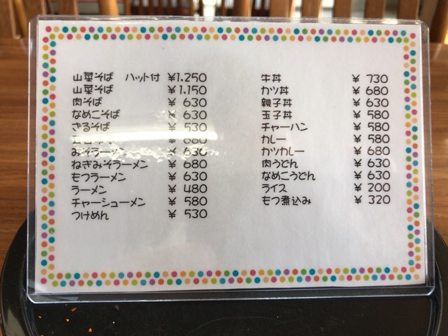 山菜そば ハット付 ¥1,250
山菜そば ¥1,150
肉そば ¥630
なめこそば ¥630
ざるそば ¥530
みそラーメン ¥630
ねぎみそラーメン ¥680
もつラーメン ¥630
ラーメン ¥480
チャーシューメン ¥580
つけめん ¥530
牛丼 ¥730
カツ丼 ¥680
親子丼 ¥630
玉子丼 ¥580
チャーハン ¥580
カレー ¥580
カツカレー ¥680
肉うどん ¥630
なめこうどん ¥630
ライス ¥200
もつ煮込み ¥320